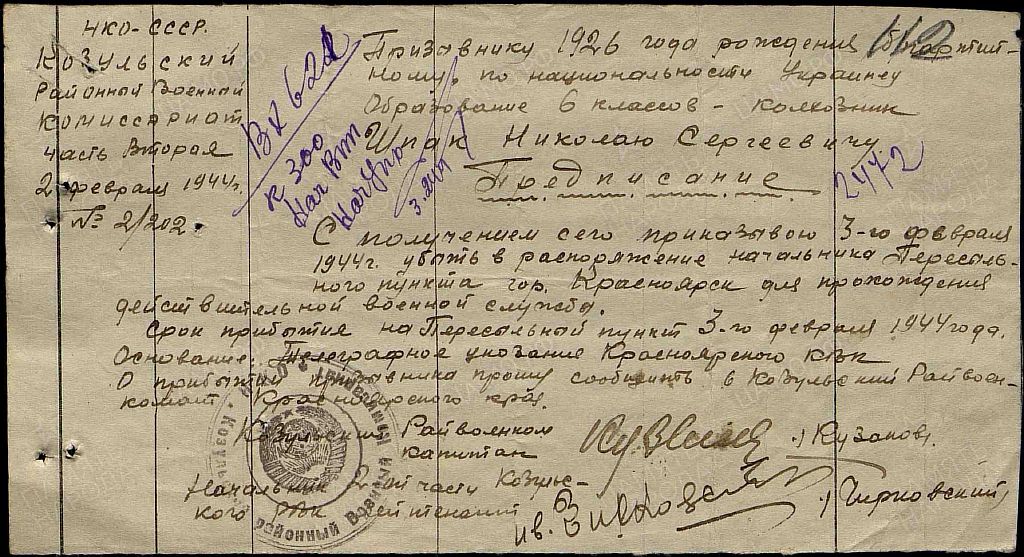 НКО-СССР.
Козульский
Районный Военный
Комиссариат
часть Вторая
2 февраля 1944г.
№ 2/202
Вх 622
к 300
Нач
3.
112
2472
Призывнику 1926 года рождения беспартий-
ному, по национальности Украинцу
Образование 6 классов - колхозник
Шпак Николаю Сергеевичу
Предписание
С получением сего приказываю 3-го февраля
1944г. убыть в распоряжение начальника Пересыль-
ного пункта гор. Красноярск для прохождения
действительной военной службы.
Срок прибытия на Пересыльный пункт 3-го февраля 1944 года.
Основание: Телеграфное указание Красноярского КВК
О прибытии призывника прошу сообщить в Козульский Райвоен-
комат Красноярского края.
Козульский Райвоенком
капитан
Начальник 2-ой части Козуль-
кого РВК лейтенант